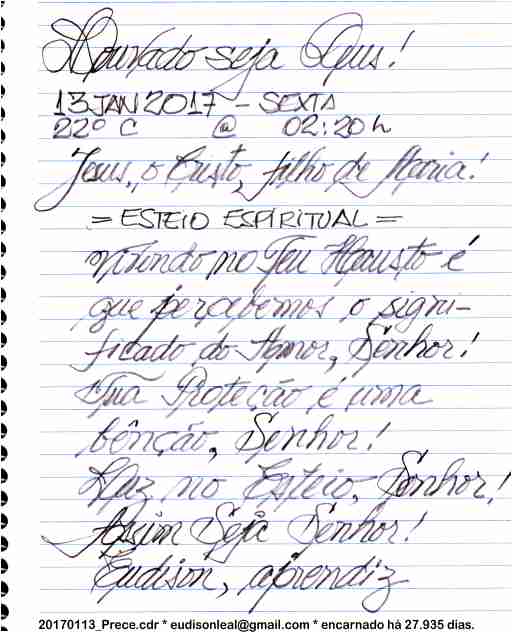 Louvado seja Deus!
13 JAN 2017 - SEXTA
22º C @ 02:20h
Jesus, o Cristo, filho de Maria!
= ESTEIO ESPIRITUAL =
Vivendo no Teu Hausto é
que percebemos o signi-
ficado do Amor, Senhor!
Tua Proteção é uma
bênção, Senhor!
Luz no Esteio, Senhor!
Assim Seja Senhor!
Eudison, aprendiz
20170113_Prece.cdr * eudisonleal@gmail.com * encarnado há 27.935 dias.